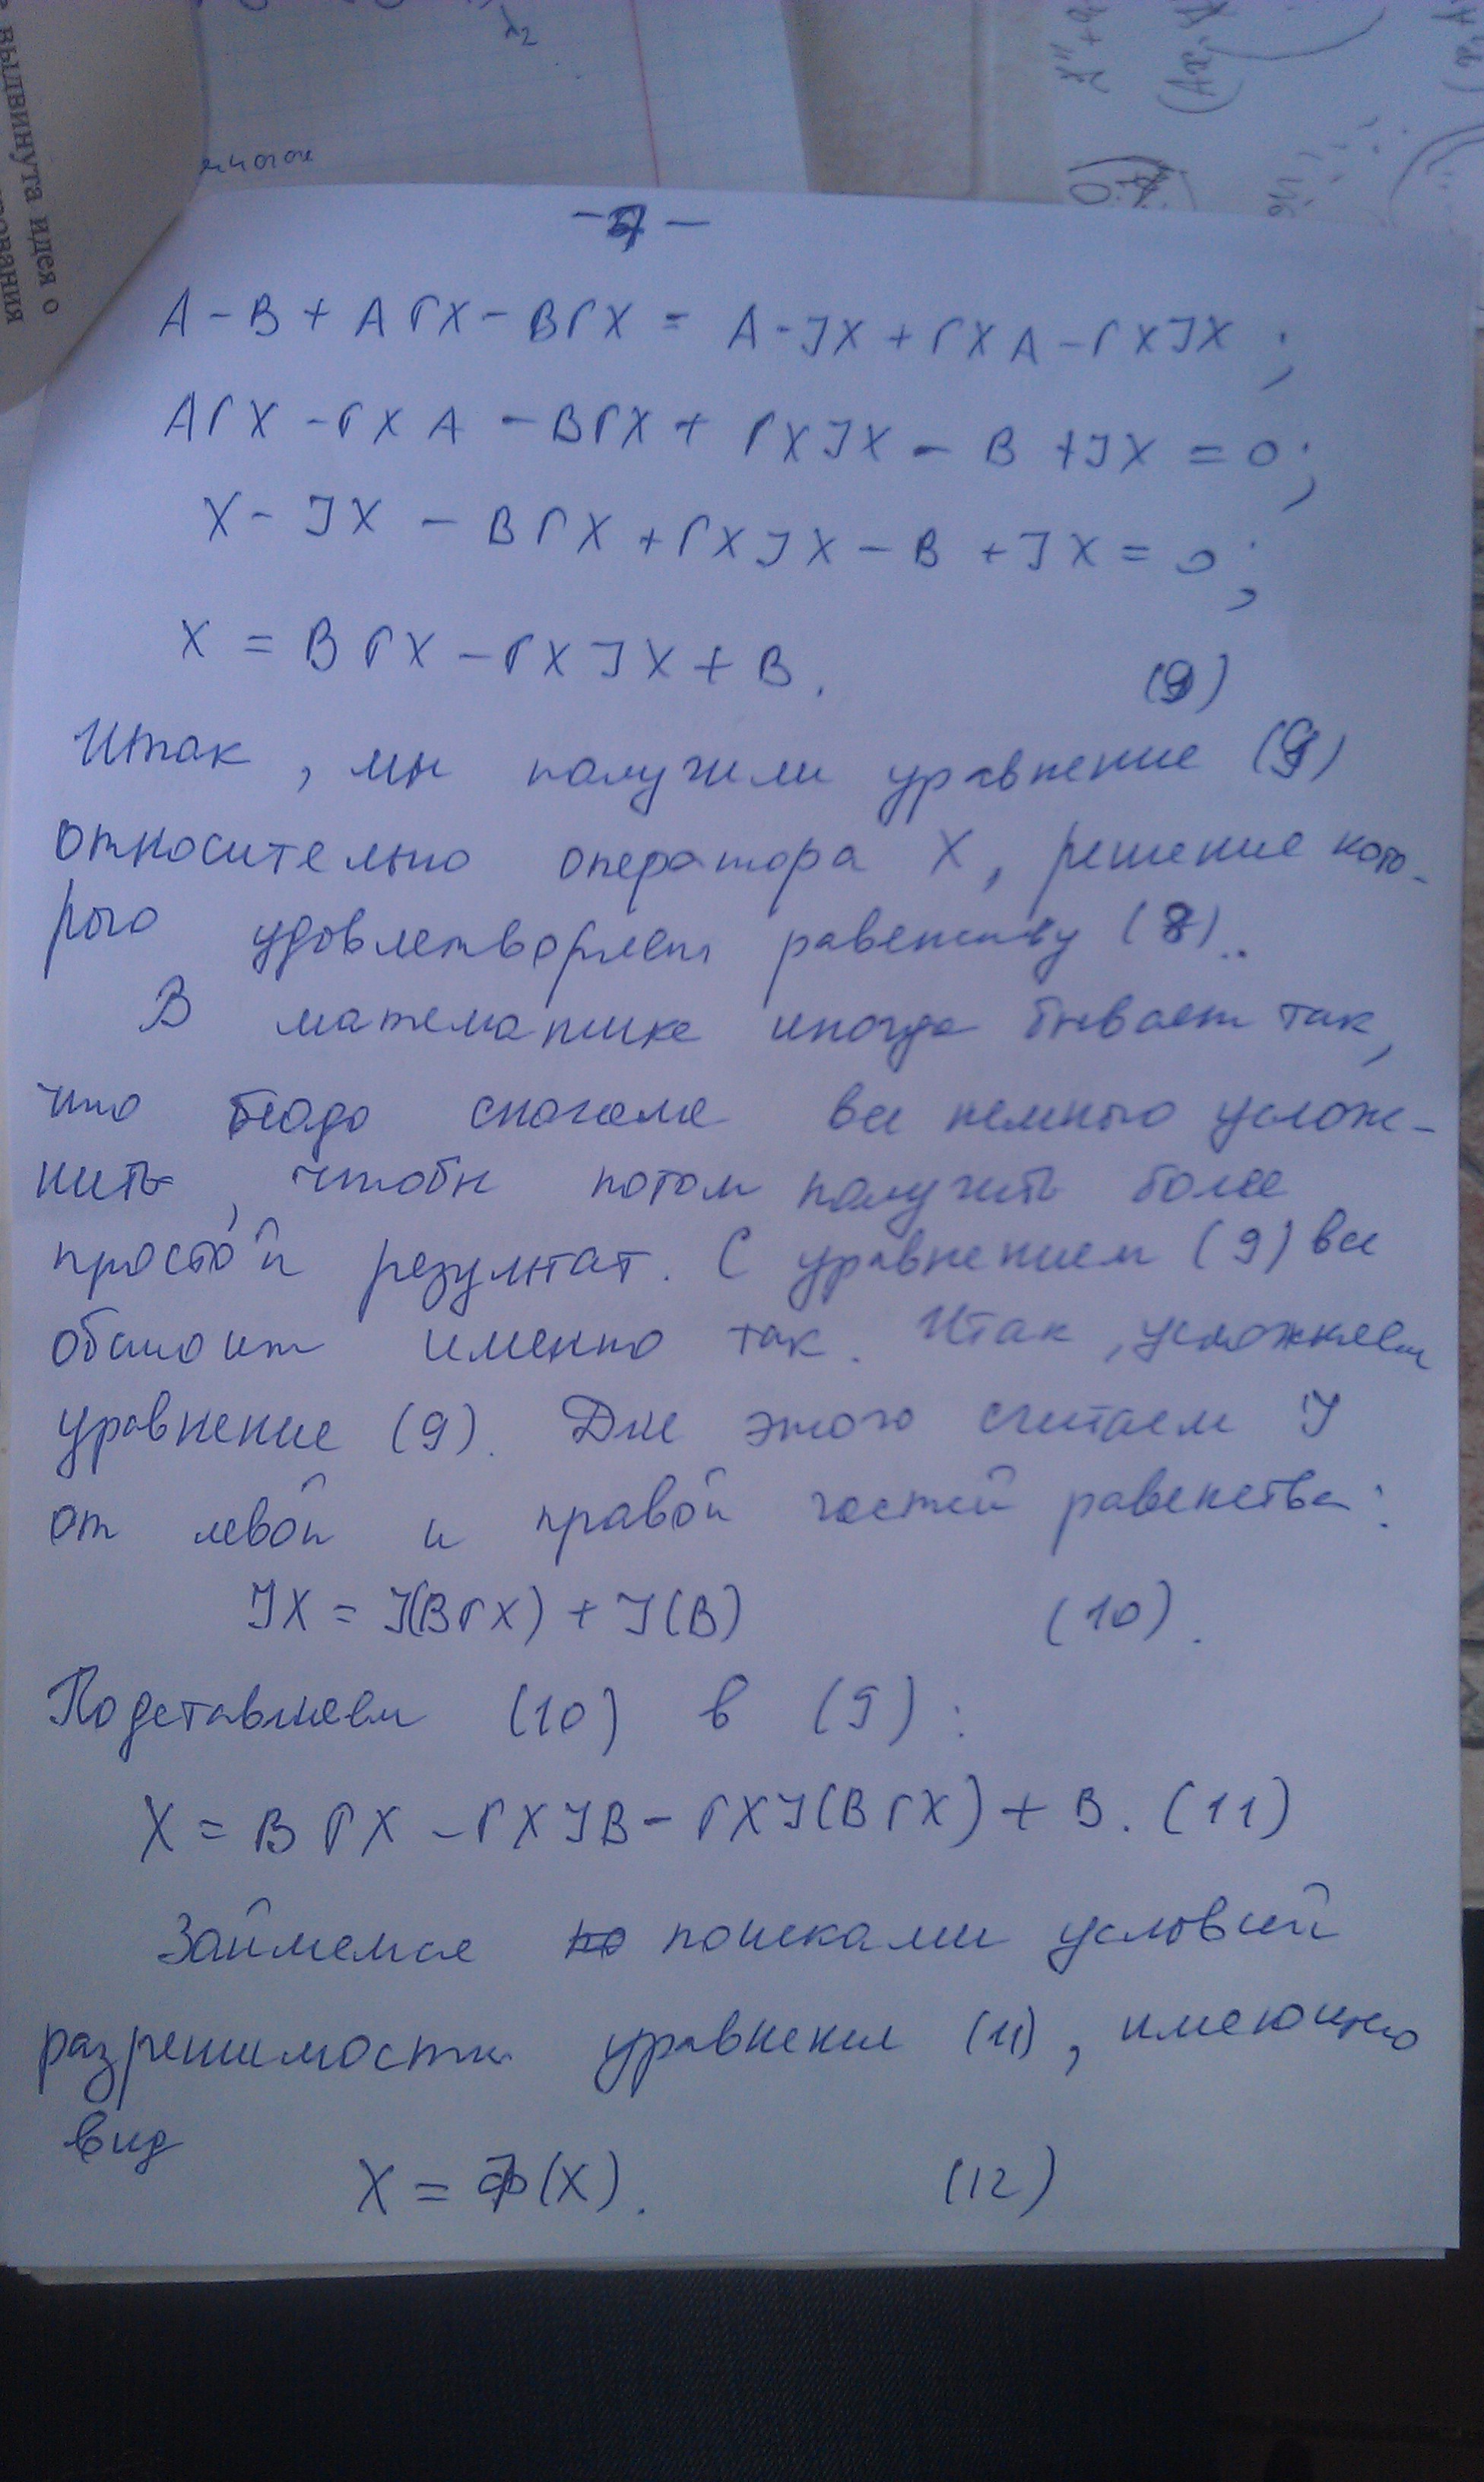 λ2
выдвинута идея о
многом
- 7 -
A - B + AГX - BГX = A - JX + ГXA - ГXJX;
AГX - ГXA - BГX + ГXJX - B + JX = 0;
X - JX - BГX + ГXJX - B + JX = 0;
X = BГX - ГXJX + B. (9)
Итак, мы получили уравнение (9)
относительно оператора X, решение кото-
рого удовлетворяет равенству (8).
В математике иногда бывает так,
что надо сначала все немного услож-
нить, чтобы потом получить более
простой результат. С уравнением (9) все
обстоит именно так. Итак, усложняем
уравнение (9). Для этого считаем J
от левой и правой частей равенства:
JX = J(BГX) + J(B) (10).
Подставляем (10) в (9):
X = BГX - ГXJB - ГXJ(BГX) + B. (11)
Займемся поисками условий
разрешимости уравнения (11), имеющего
вид
X = Ф(X). (12)